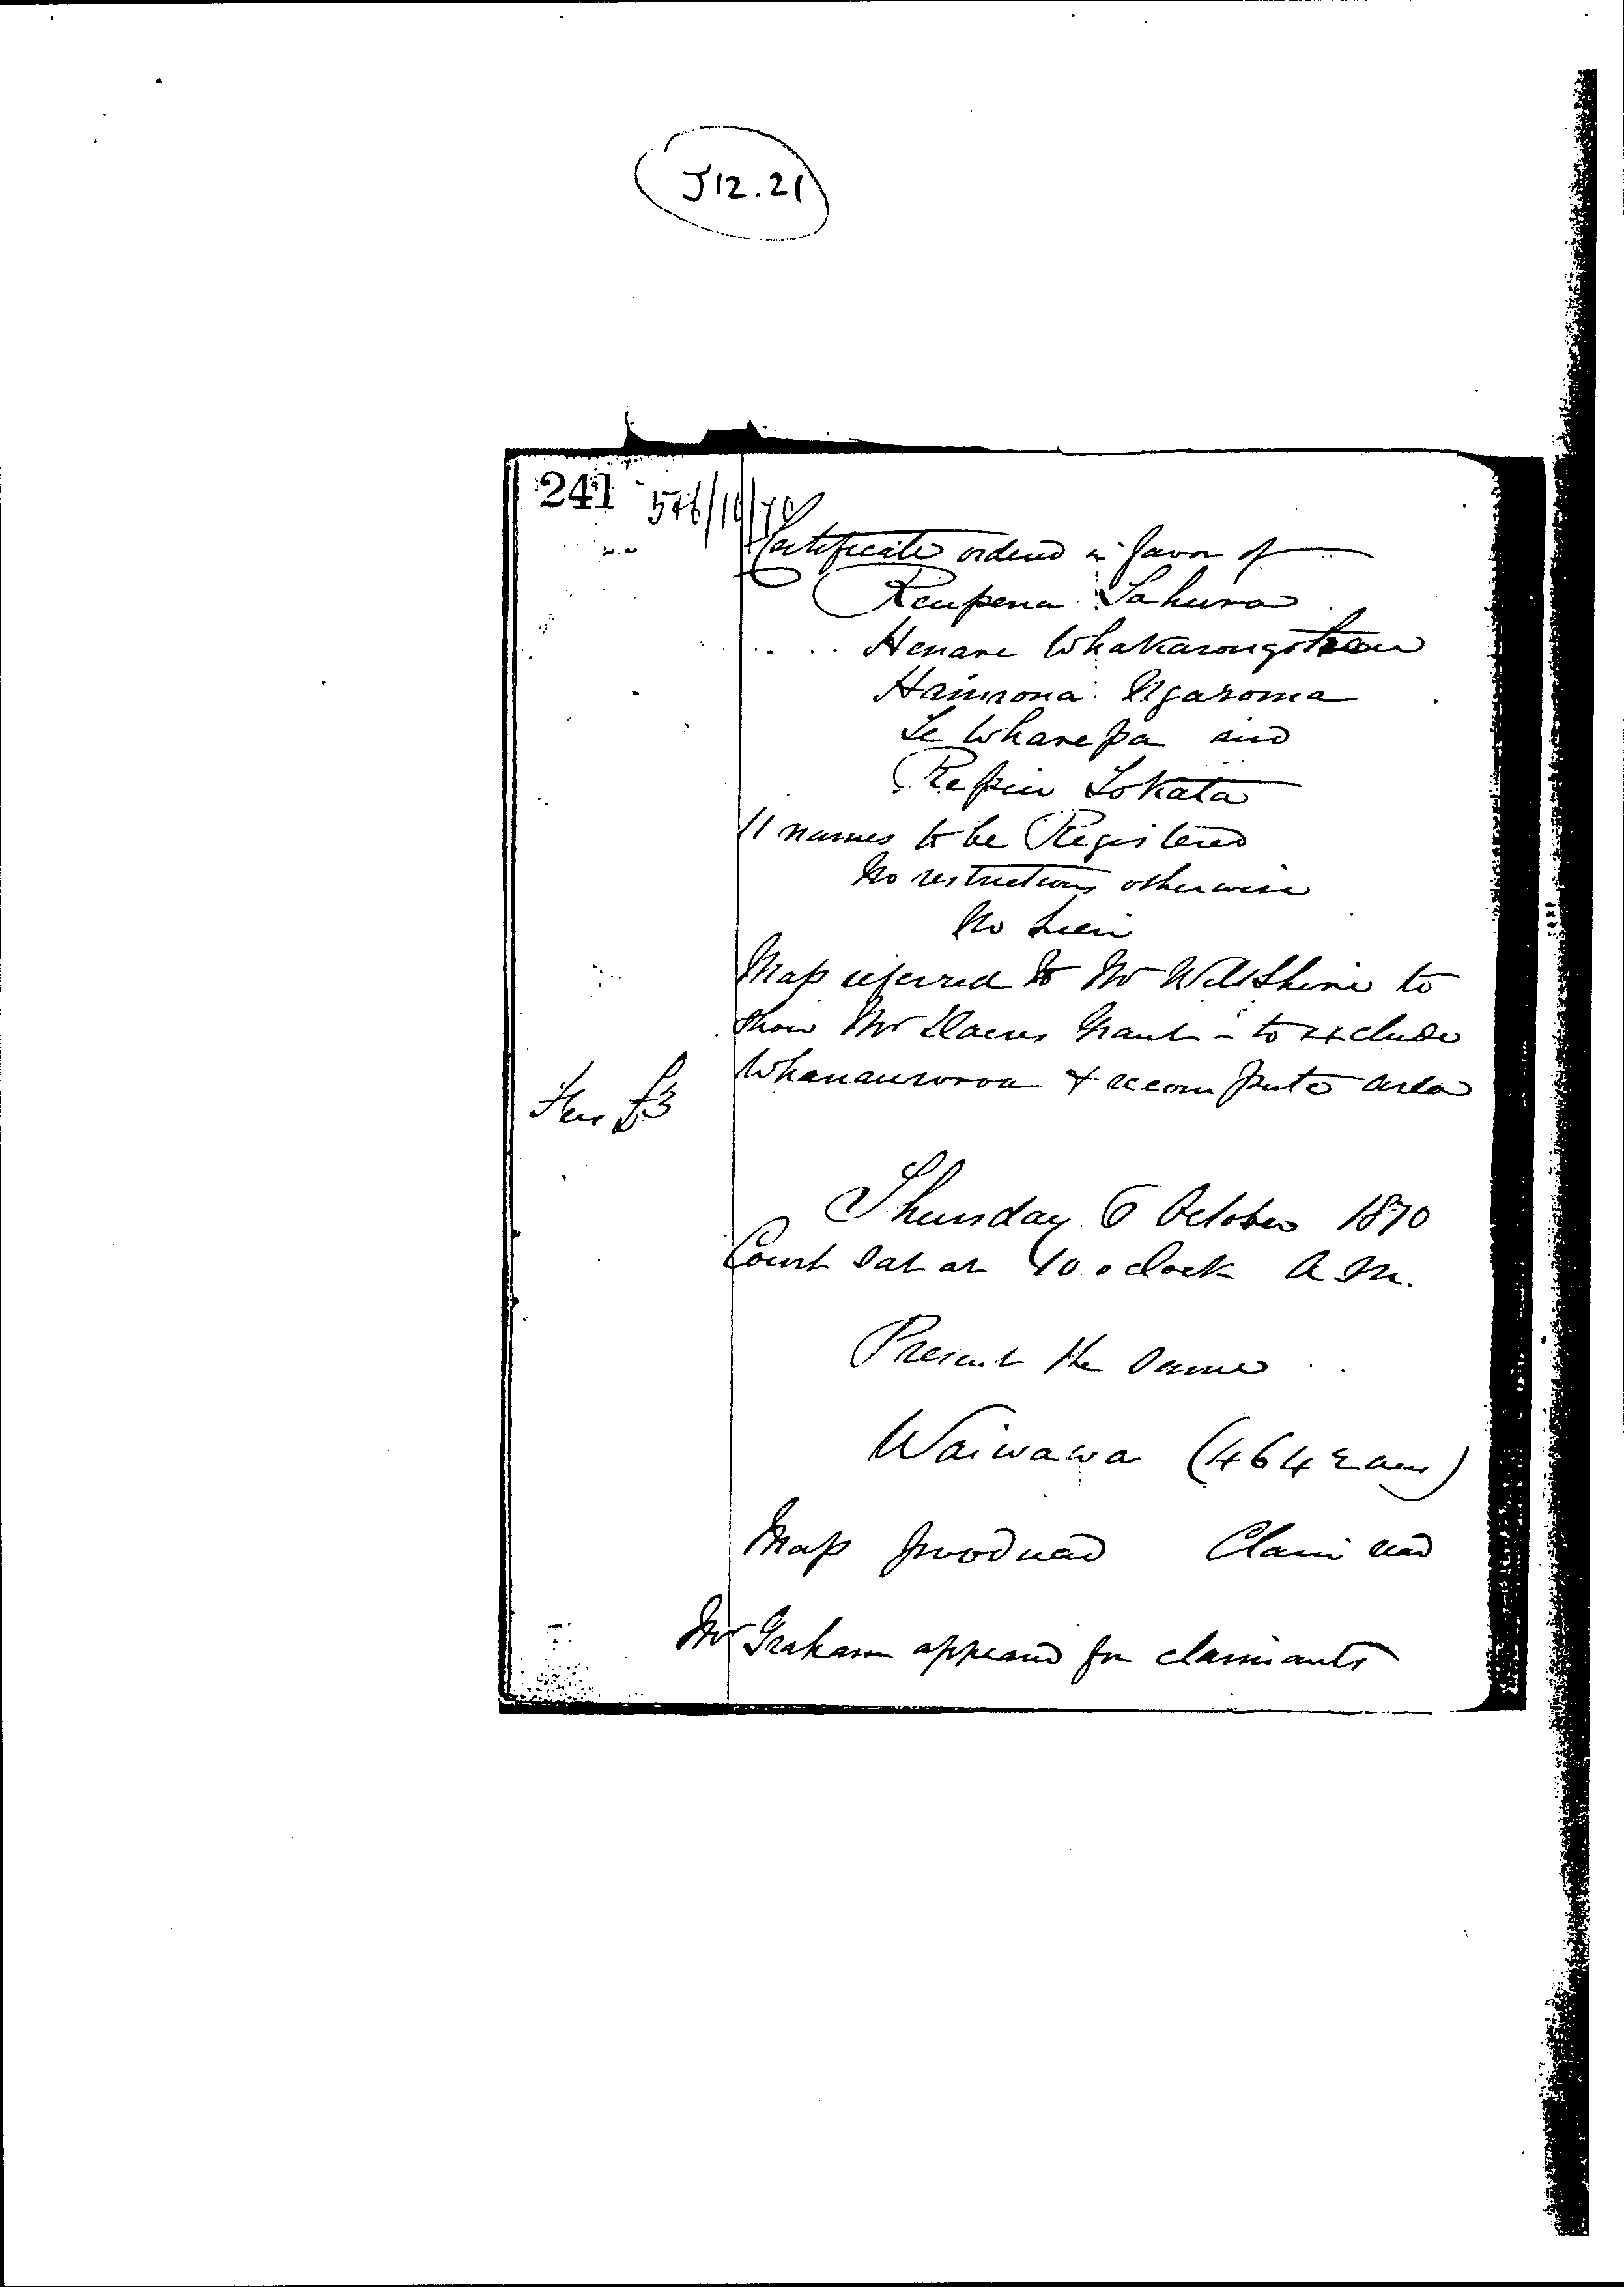 J12.21
241
Certificate ordered in favor of
Reupena Tahura
Henare
Hamiora Ngaroma
Te Wharepa and
Tokata
11 names to be Registered
No restrictions otherwise
No Lien
Map referred to Mr Wiltshire to
show Mr Dacres Grant - to exclude
& recompute area
Fees £3
Thursday 6 October 1870
Court sat at 10 o clock A.M.
Present the same
Waiwawa (4642 acres)
Map produced Claim read
Mr Graham appeared for claimants